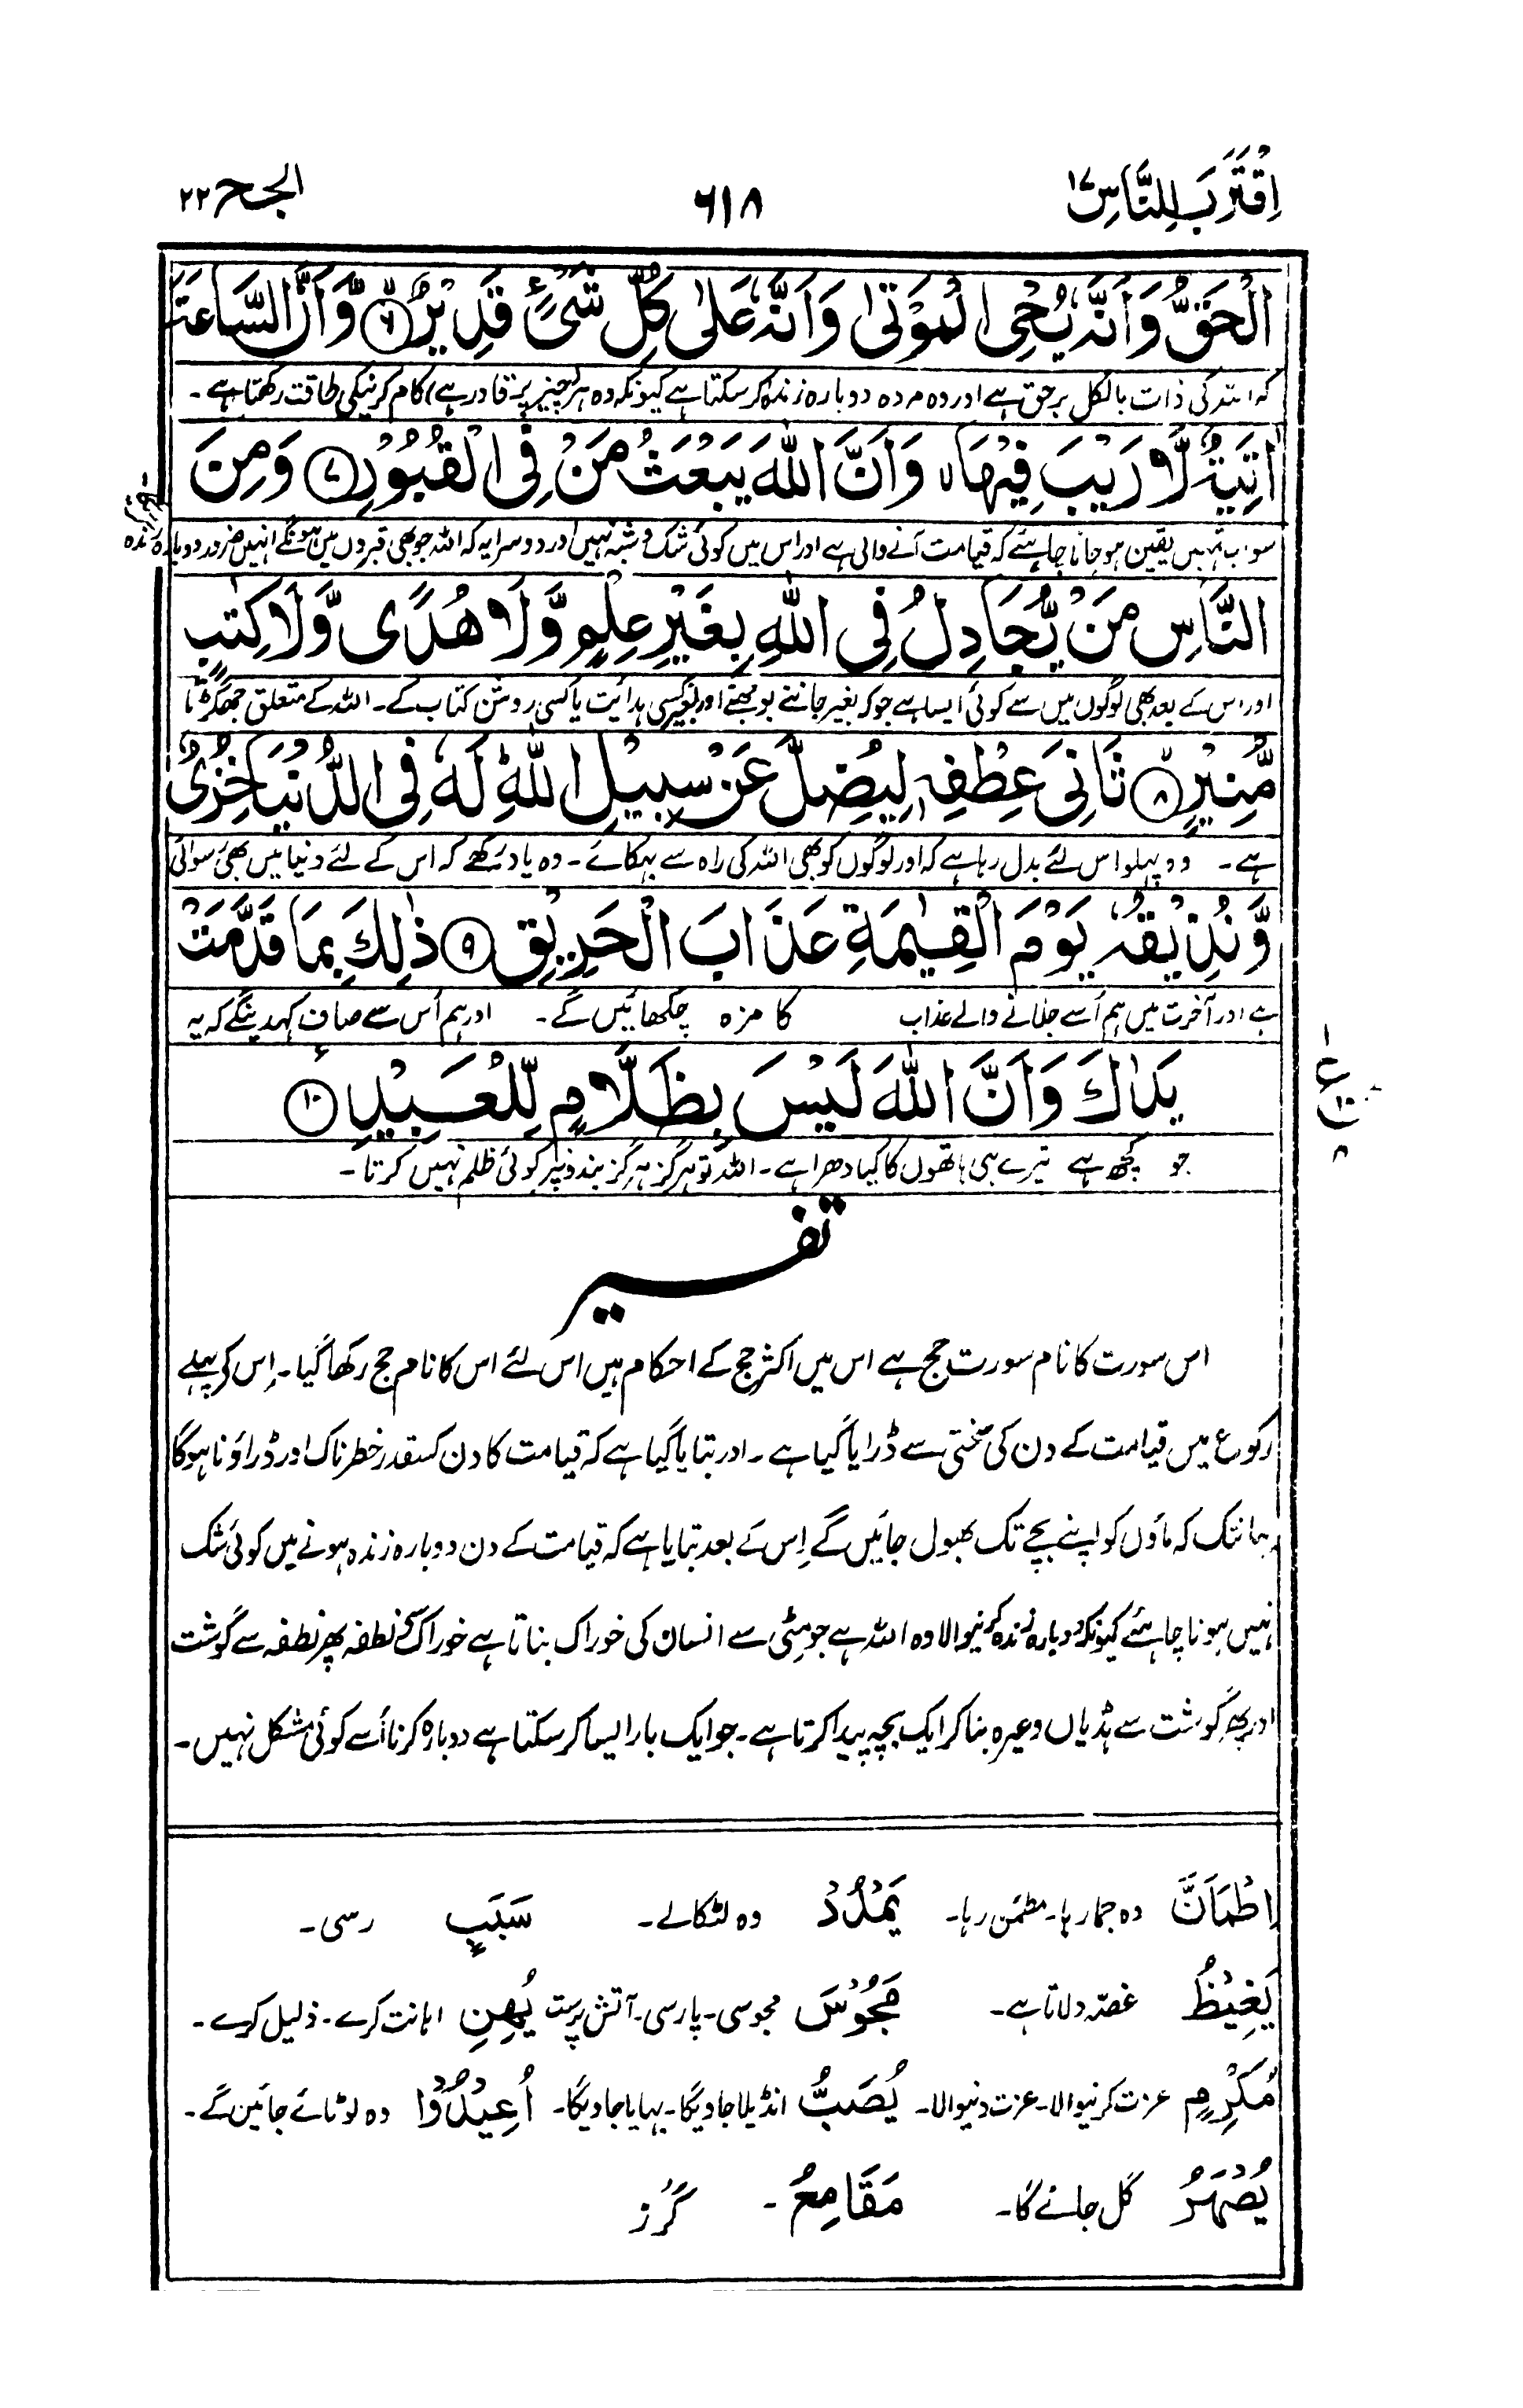 اِقْتَرَبَ لِلنَّاسِ ١٧ ٦١٨ الحج ٢٢
الْحَقُّ وَاَنَّهٗ يُحْیِ الْمَوْتٰى وَاَنَّهٗ عَلٰى كُلِّ شَیْءٍ قَدِيْرٌ ۙ﴿٦﴾ وَّاَنَّ السَّاعَةَ
کہ اللہ کی ذات بالکل برحق ہے اور وہ مردہ دوبارہ زندہ کر سکتا ہے کیونکہ وہ ہر چیز پر قادر ہے (کام کرنیکی طاقت رکھتا ہے۔
اٰتِيَةٌ لَّا رَيْبَ فِيْهَا ۙ وَاَنَّ اللّٰهَ يَبْعَثُ مَنْ فِی الْقُبُوْرِ ﴿٧﴾ وَمِنَ
سو اب تمہیں یقین ہو جانا چاہئیے کہ قیامت آنے والی ہے اور اس میں کوئی شک و شبہ نہیں اور دوسرا یہ کہ اللہ جو بھی قبروں میں ہونگے انہیں ضرور دوبارہ زندہ
النَّاسِ مَنْ يُّجَادِلُ فِی اللّٰهِ بِغَيْرِ عِلْمٍ وَّلَا هُدًى وَّلَا كِتٰبٍ
اور اس کے بعد بھی لوگوں میں سے کوئی ایسا ہے جو کہ بغیر جاننے بوجھنے اور بغیر کسی ہدائیت یا کسی روشن کتاب کے۔ اللہ کے متعلق جھگڑتا
مُّنِيْرٍ ۙ﴿٨﴾ ثَانِیَ عِطْفِهٖ لِيُضِلَّ عَنْ سَبِيْلِ اللّٰهِ ؕ لَهٗ فِی الدُّنْيَا خِزْیٌ
ہے۔ وہ پہلو اس لئے بدل رہا ہے کہ اور لوگوں کو بھی اللہ کی راہ سے بہکائے۔ وہ یاد رکھے کہ اس کے لئے دنیا میں بھی رسوائی
وَّنُذِيْقُهٗ يَوْمَ الْقِيٰمَةِ عَذَابَ الْحَرِيْقِ ﴿٩﴾ ذٰلِكَ بِمَا قَدَّمَتْ
ہے اور آخرت میں ہم اُسے جلانے والے عذاب کا مزہ چکھائیں گے۔ اور ہم اُس سے صاف کہدینگے کہ یہ
يَدٰكَ وَاَنَّ اللّٰهَ لَيْسَ بِظَلَّامٍ لِّلْعَبِيْدِ ﴿١٠﴾
ع ١٠ ٨
جو کچھ ہے تیرے ہی ہاتھوں کا کیا دھرا ہے۔ اللہ تو ہرگز ہرگز بندوں پر کوئی ظلم نہیں کرتا۔
تفسیر
اس سورت کا نام سورت حج ہے اس میں اکثر حج کے احکام ہیں اس لئے اس کا نام حج رکھا گیا۔ اِس کے پہلے
رکوع میں قیامت کے دن کی سختی سے ڈرایا گیا ہے۔ اور بتایا گیا ہے کہ قیامت کا دن کسقدر خطرناک اور ڈراؤنا ہوگا
یہانتک کہ ماؤں کو اپنے بچے تک بھول جائیں گے اِس کے بعد بتایا ہے کہ قیامت کے دن دوبارہ زندہ ہونے میں کوئی شک
نہیں ہونا چاہئے کیونکہ دوبارہ زندہ کرنیوالا وہ اللہ ہے جو مٹی سے انسان کی خوراک بناتا ہے خوراک سے نطفہ پھر نطفہ سے گوشت
اور پھر گوشت سے ہڈیاں وغیرہ بنا کر ایک بچہ پیدا کرتا ہے۔ جو ایک بار ایسا کر سکتا ہے دوبارہ کرنا اُسے کوئی مشکل نہیں۔
اِطْمَاَنَّ وہ جما رہا۔ مطمئن رہا۔ يَمْدُدْ وہ لٹکالے۔ سَبَبٍ رسی۔
يَغِيْظُ غصّہ دلاتا ہے۔ مَجُوْسَ مجوسی۔ پارسی۔ آتش پرست يُهِنِ اہانت کرے۔ ذلیل کرے۔
مُكْرِمٍ عزت کرنیوالا۔ عزت دنیوالا۔ يُصَبُّ انڈیلا جاویگا۔ بہایا جاویگا۔ اُعِيْدُوْا وہ لوٹائے جائیں گے۔
يُصْهَرُ گل جائے گا۔ مَقَامِعُ۔ گُرز